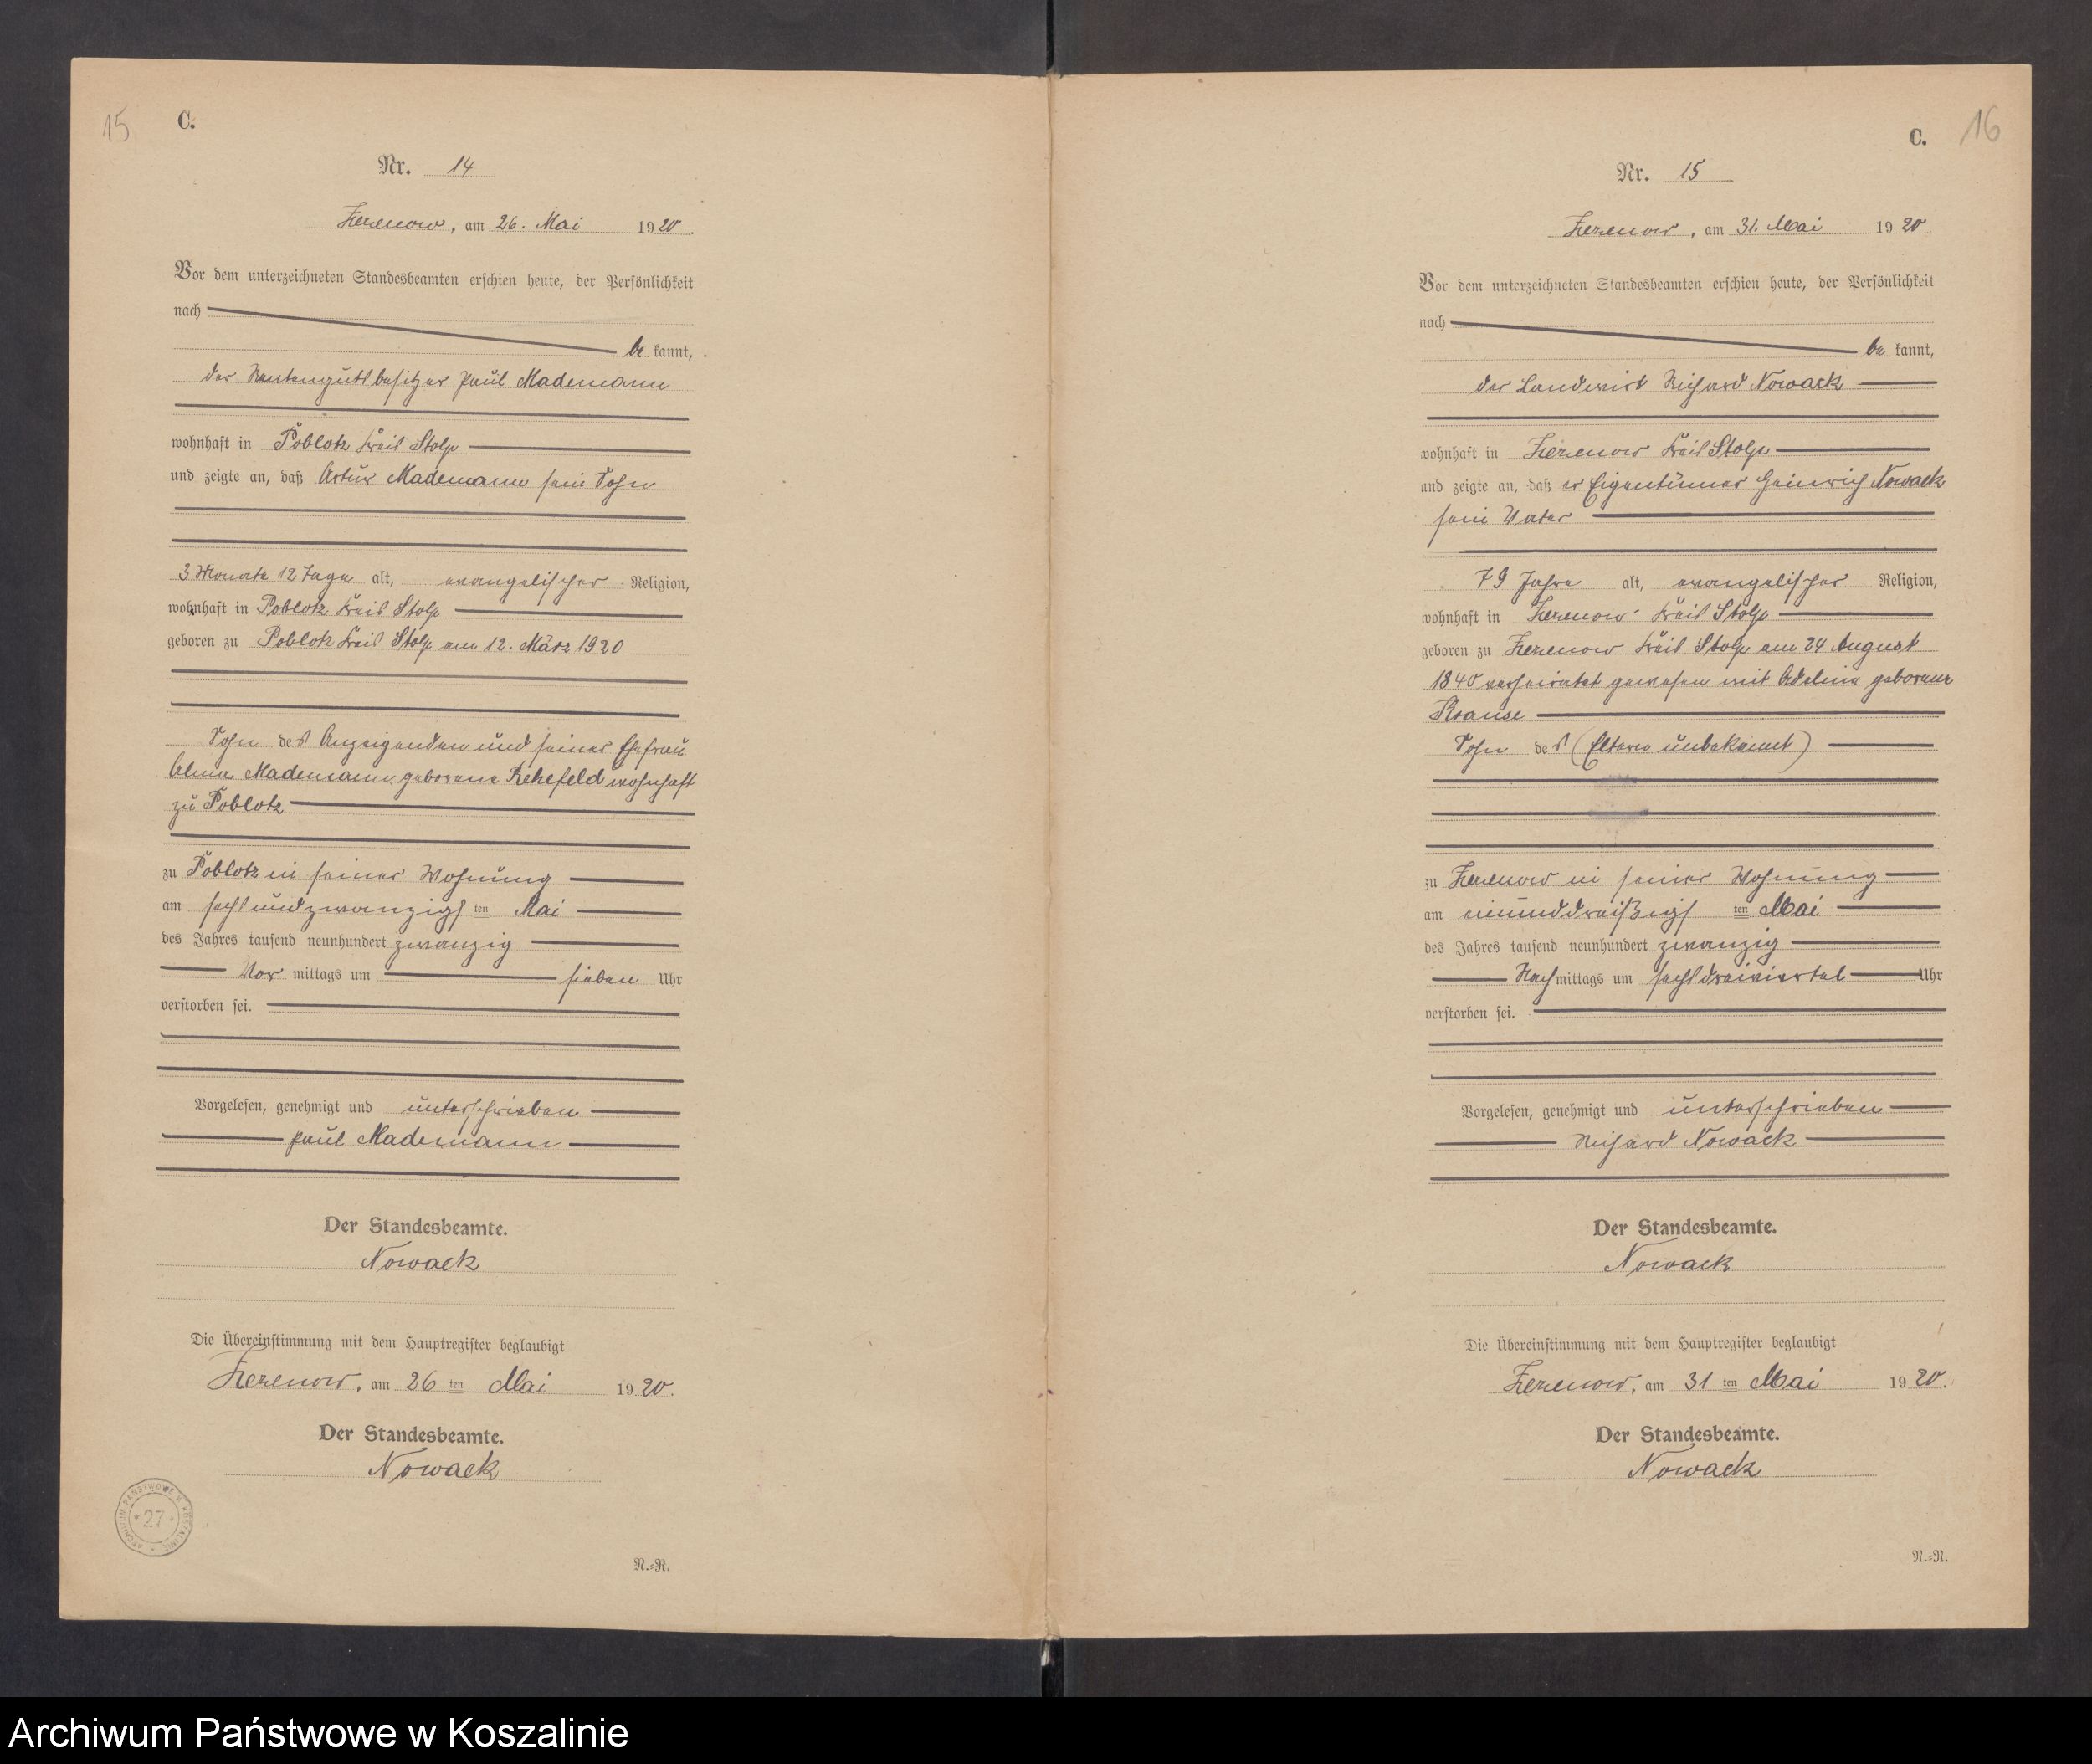 15
C.
Nr. 14
Zezenow, am 26. Mai 1920.
Vor dem unterzeichneten Standesbeamten erschien heute, der Persönlichkeit
nach
be kannt,
der Rentengutsbesitzer Paul Mademann
wohnhaft in Poblotz Kreis Stolp
und zeigte an, daß Artur Mademann sein Sohn
3 Monate 12 Tage alt, evangelischer Religion,
wohnhaft in Poblotz Kreis Stolp
geboren zu Poblotz Kreis Stolp am 12. März 1920
Sohn des Anzeigenden und seiner Ehefrau
Alma Mademann geborene Rehefeld wohnhaft
zu Poblotz
zu Poblotz in seiner Wohnung
am sechsundzwanzigsten Mai
des Jahres tausend neunhundert zwanzig
Vor mittags um sieben Uhr
verstorben sei.
Vorgelesen, genehmigt und unterschrieben
Paul Mademann
Der Standesbeamte.
Nowack
Die Übereinstimmung mit dem Hauptregister beglaubigt
Zezenow, am 26 ten Mai 1920.
Der Standesbeamte.
Nowack
ARCHIWUM PAŃSTWOWE W KOSZALINIE
* 27 *
R.=R.
16
C.
Nr. 15
Zezenow, am 31. Mai 1920
Vor dem unterzeichneten Standesbeamten erschien heute, der Persönlichkeit
nach
be kannt,
der Landwirt Richard Nowack
wohnhaft in Zezenow Kreis Stolp
und zeigte an, daß er Eigentümer Heinrich Nowack
sein Vater
79 Jahre alt, evangelischer Religion,
wohnhaft in Zezenow Kreis Stolp
geboren zu Zezenow Kreis Stolp am 24 August
1840 verheiratet gewesen mit Adeline geborene
Krause
Sohn des (Eltern unbekannt)
zu Zezenow in seiner Wohnung
am einunddreißigsten Mai
des Jahres tausend neunhundert zwanzig
Nachmittags um sechsdreiviertel Uhr
verstorben sei.
Vorgelesen, genehmigt und unterschrieben
Richard Nowack
Der Standesbeamte.
Nowack
Die Übereinstimmung mit dem Hauptregister beglaubigt
Zezenow, am 31 ten Mai 1920.
Der Standesbeamte.
Nowack
R.=R.
Archiwum Państwowe w Koszalinie